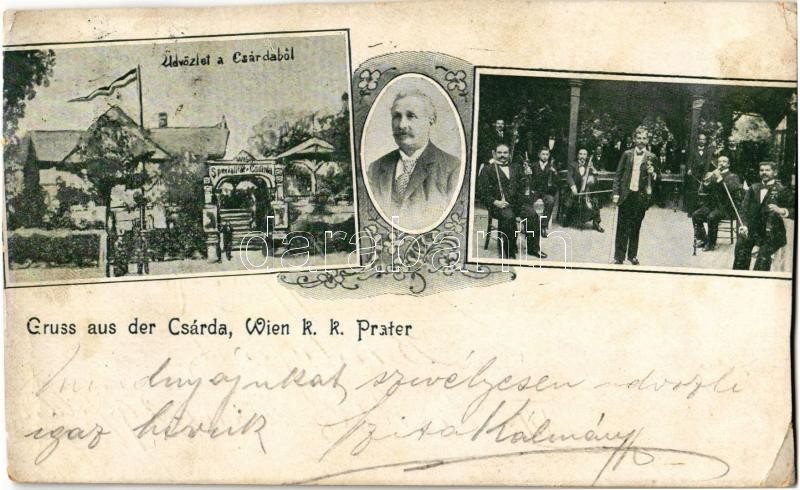 Üdvözlet a Csárdából
Specialität Csárda
darabanth
Gruss aus der Csárda, Wien k. k. Prater
Mindnyájukat szivélyesen üdvözli
igaz hivük Szita Kálmán